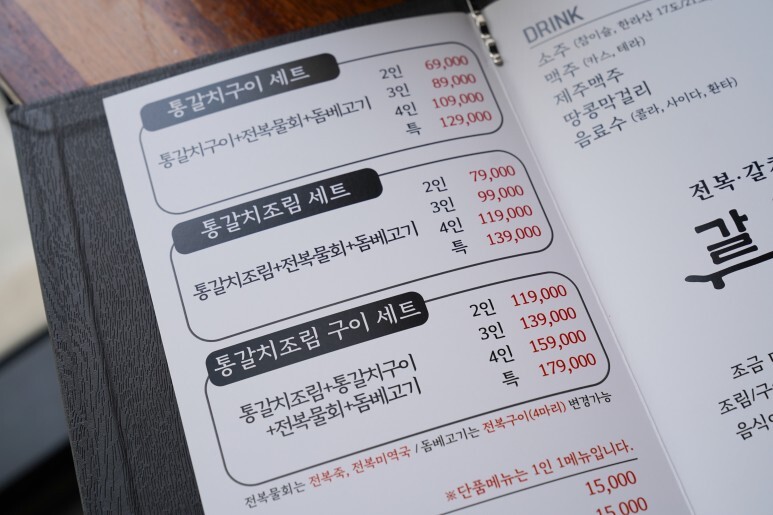 통갈치구이 세트
통갈치구이+전복물회+돔베고기
2인 69,000
3인 89,000
4인 109,000
특 129,000
통갈치조림 세트
통갈치조림+전복물회+돔베고기
2인 79,000
3인 99,000
4인 119,000
특 139,000
통갈치조림 구이 세트
통갈치조림+통갈치구이
+전복물회+돔베고기
2인 119,000
3인 139,000
4인 159,000
특 179,000
전복물회는 전복죽, 전복미역국 / 돔베고기는 전복구이(4마리) 변경가능
※단품메뉴는 1인 1메뉴입니다.
15,000
15,000
DRINK
소주 (참이슬, 한라산 17도/21
맥주 (카스, 테라)
제주맥주
땅콩막걸리
음료수 (콜라, 사이다, 환타)
전복·갈
갈
조금
조림/구
음식